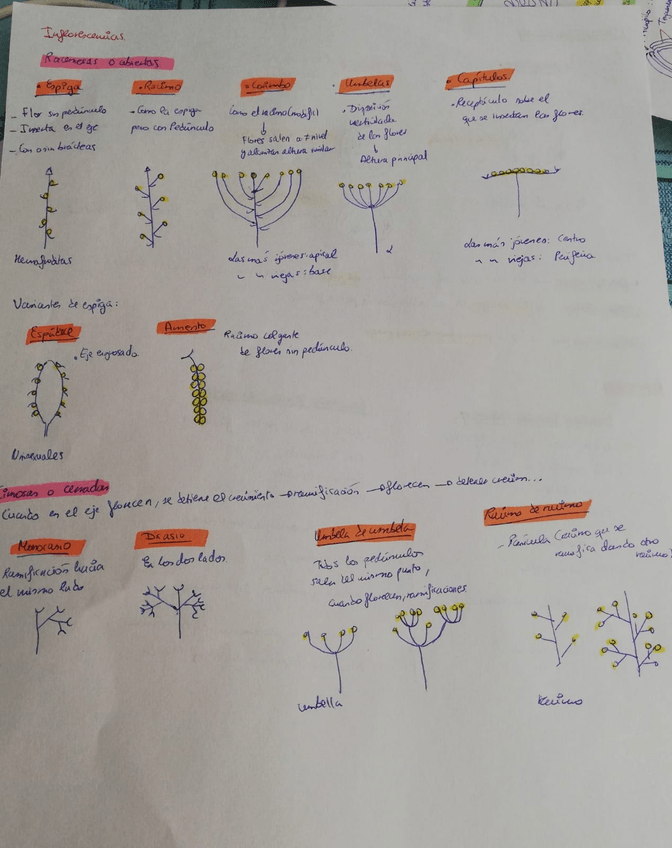 Inflorescencias.
Racemosas o abiertas
• Espiga
- Flor sin pedúnculo
- Inserta en el eje
- Con o sin brácteas
Hermafroditas
• Racimo
• Como la espiga
pero con Pedúnculo
• Corimbo
Como el racimo
Flores salen a ≠ nivel
y alcanzan altura similar
Las más jóvenes: apical
" " viejas: base
• Umbelas
• Disposición
verticilada
de las flores
Altura principal
• Capítulos
• Receptáculo sobre el
que se insertan las flores.
Las más jóvenes: Centro
" " viejas: Periferia
Variantes de espiga:
Espádice
• Eje engrosado
Unisexuales
Amento
Racimo colgante
de flores sin pedúnculo.
Cimosas o cerradas
Cuando en el eje florecen, se detiene el crecimiento → ramificación → florecen → detener crecim...
Monocasio
Ramificación hacia
el mismo lado
Dicasio
En los dos lados
Umbela de umbela
Todos los pedúnculos
salen del mismo punto,
cuando florecen, ramificaciones
Umbella
Racimo de racimo
- Panícula (racimo que se
ramifica dando otro
racimo)
Racimo